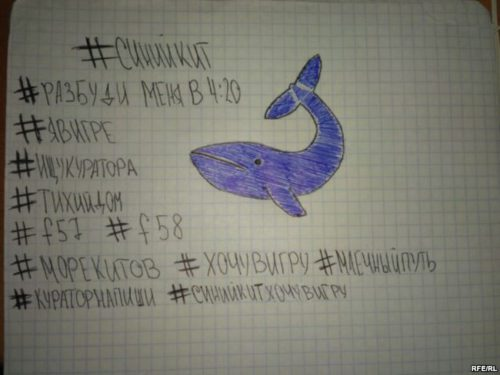 #СИНИЙКИТ
#РАЗБУДИ МЕНЯ В 4:20
#ЯВИГРЕ
#ИЩУКУРАТОРА
#ТИХИЙДОМ
#f57 #f58
#МОРЕКИТОВ #ХОЧУВИГРУ #МЛЕЧНЫЙПУТЬ
#КУРАТОРНАПИШИ #СИНИЙКИТХОЧУВИГРУ
RFE/RL